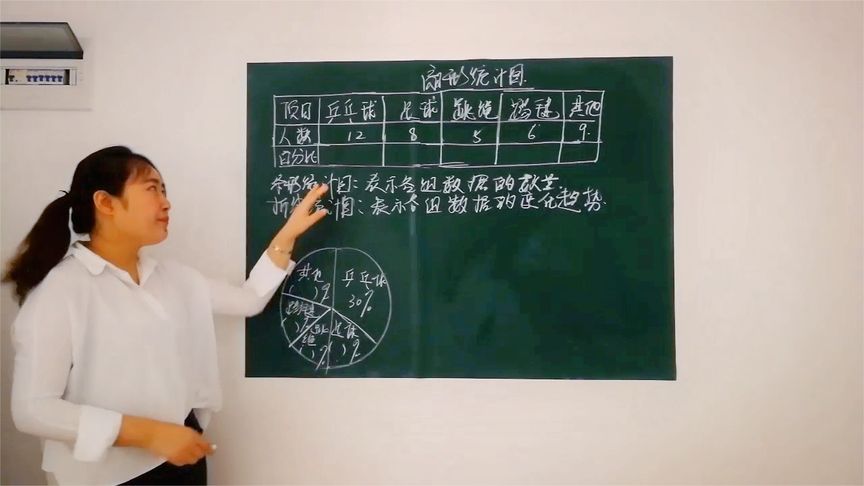 扇形统计图
项目 乒乓球 足球 跳绳 踢毽 其他
人数 12 8 5 6 9
百分比
条形统计图：表示各组数据的数量
折线统计图：表示各组数据的变化趋势
其他 ( )%
乒乓球 30%
踢毽 ( )%
跳绳 ( )%
足球 ( )%